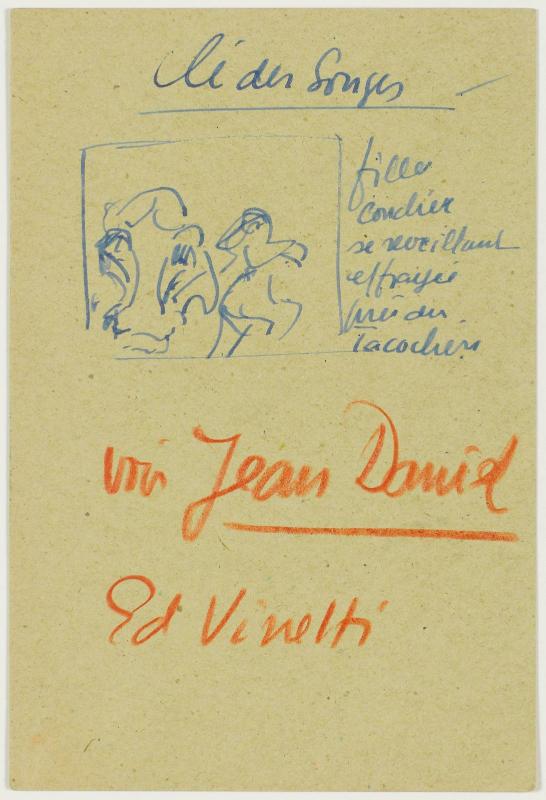 Clé des Songes
fille
couchée
se reveillant
effrayée
près du
voir Jean David
Ed Vinetti